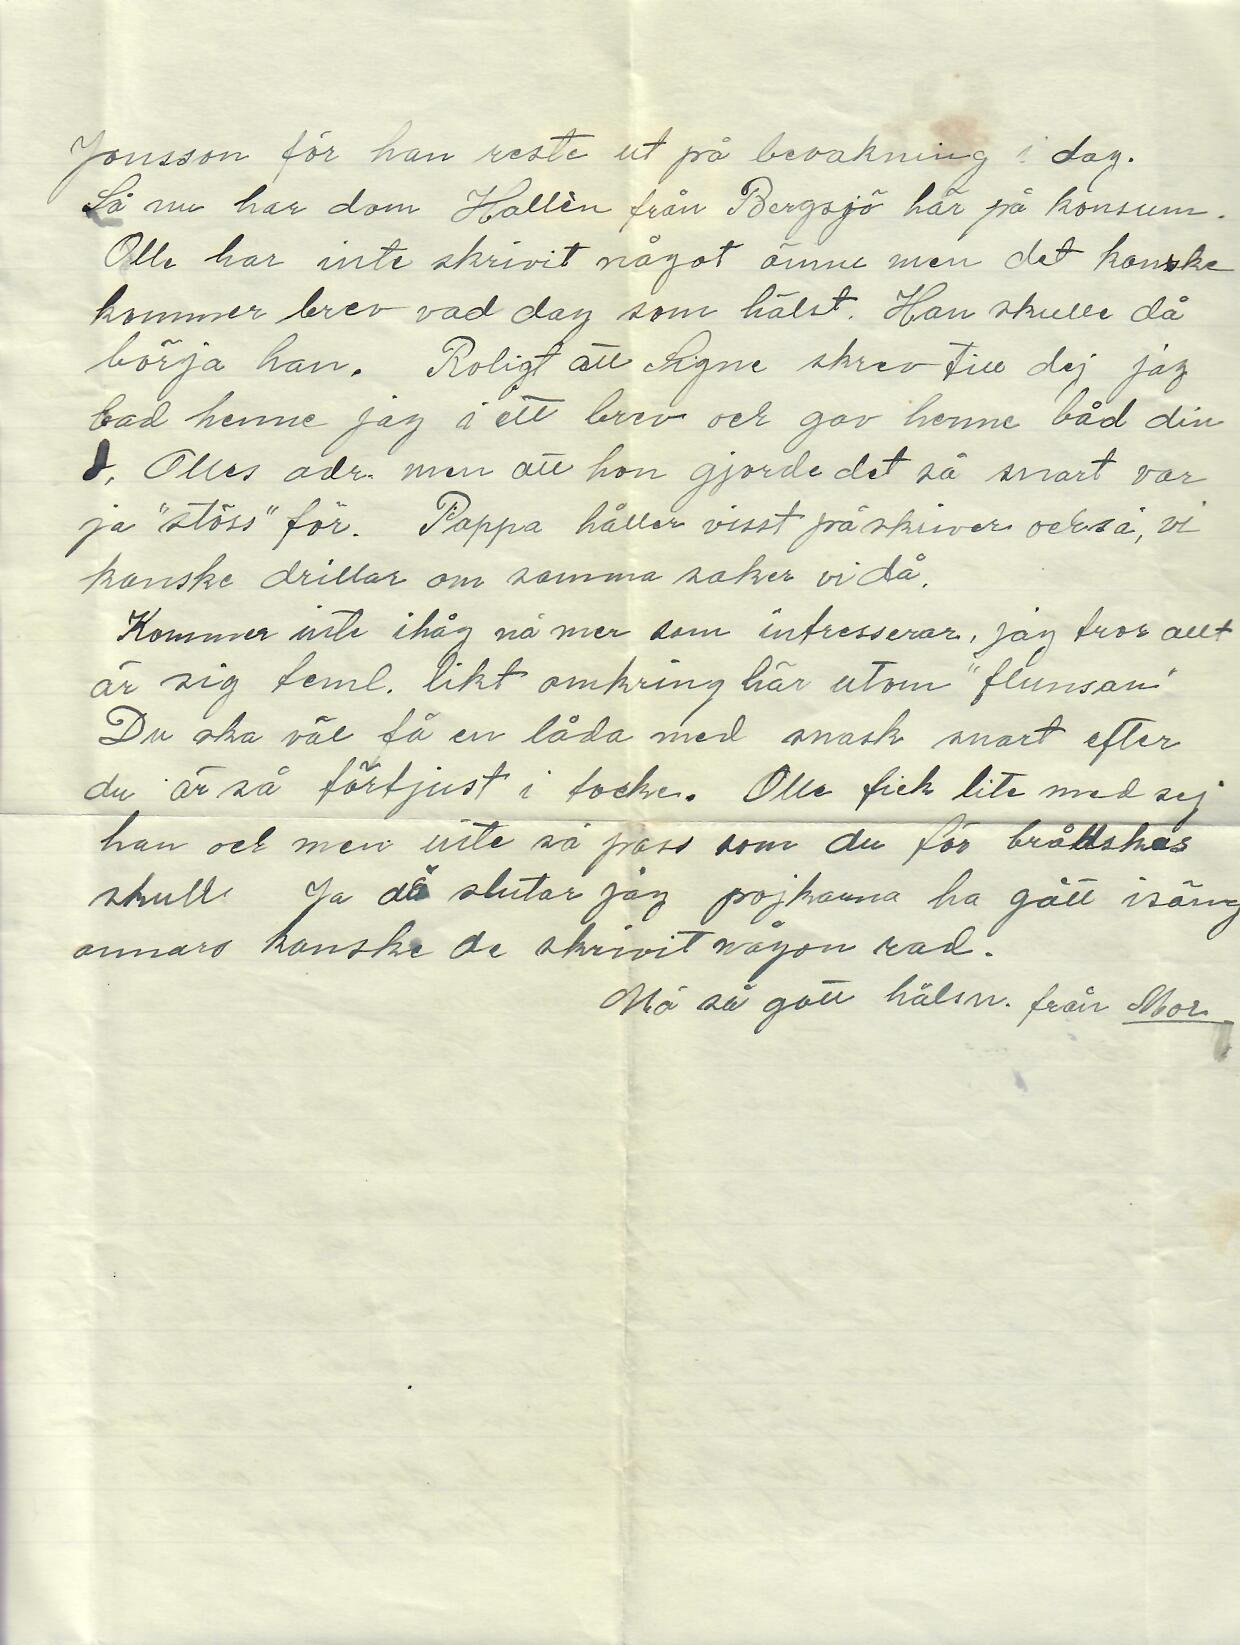 Jonsson för han reste ut på bevakning i dag.
Så nu har dom Hallèn från Bergsjö här på konsum.
Olle har inte skrivit något ännu men det kanske
kommer brev vad dag som hälst. Han skulle då
börja han. Roligt att Signe skrev till dej jag
bad henne jag i ett brev och gav henne båd din
o. Olles adr. men att hon gjorde det så snart var
ja "stöss" för. Pappa håller visst på skriver också, vi
kanske drillar om samma saker vi då.
Kommer inte ihåg nå mer som intresserar, jag tror allt
är sig teml. likt omkring här utom "flunsan"
Du ska väl få en låda med snask snart efter
du är så förtjust i tocke. Olle fick lite med sej
han och men inte så pass som du för bråttskas
skull. Ja då slutar jag pojkarna ha gått isäng
annars kanske de skrivit någon rad.
Må så gott hälsn. från Mor